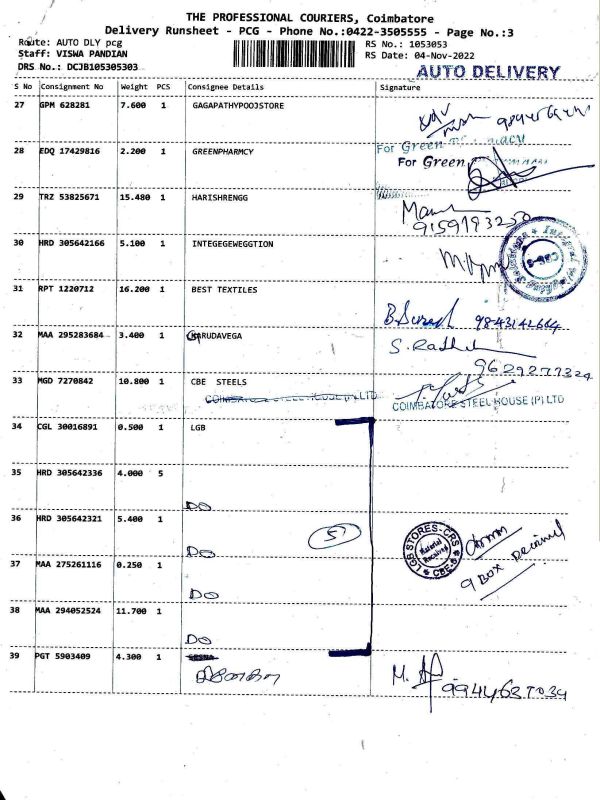 THE PROFESSIONAL COURIERS, Coimbatore
Delivery Runsheet - PCG - Phone No.:0422-3505555 - Page No.:3
Route: AUTO DLY pcg RS No.: 1053053
Staff: VISWA PANDIAN RS Date: 04-Nov-2022
DRS No.: DCJB105305303 AUTO DELIVERY
S No Consignment No Weight PCS Consignee Details Signature
27 GPM 628281 7.600 1 GAGAPATHYPOOJSTORE
28 EDQ 17429816 2.200 1 GREENPHARMCY
For Green
For Green
29 TRZ 53825671 15.480 1 HARISHRENGG
9159193250
30 HRD 305642166 5.100 1 INTEGEGEWEGGTION
CBE-6
31 RPT 1220712 16.200 1 BEST TEXTILES
B.Suresh 9843141664
32 MAA 295283684 3.400 1 KARUDAVEGA
9629277324
33 MGD 7270842 10.800 1 CBE STEELS
COIMBATORE STEEL HOUSE (P) LTD
COIMBATORE STEEL HOUSE (P) LTD
34 CGL 30016891 0.500 1 LGB
35 HRD 305642336 4.000 5
DO
36 HRD 305642321 5.400 1
5
DO
LGB STORES-CRS
Material Received
CBE-6
9 BOX Received
37 MAA 275261116 0.250 1
DO
38 MAA 294052524 11.700 1
DO
39 PGT 5903409 4.300 1
9944637034